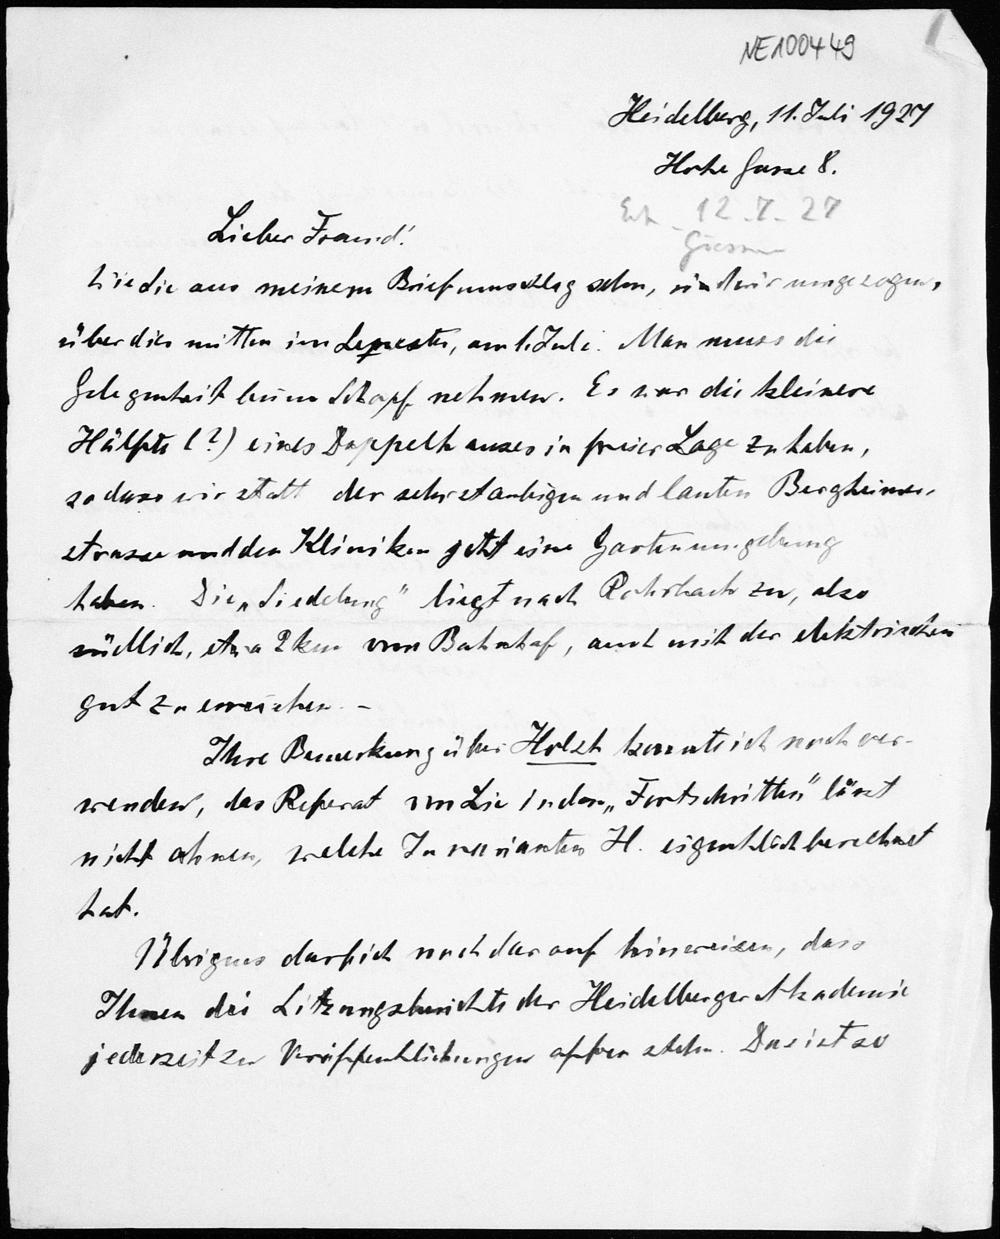 NE100449
Heidelberg, 11. Juli 1927
Hohe Gasse 8.
12.7.27
Giessen
Lieber Freund!
Wie Sie aus meinem Briefumschlag sehen, sind wir umgezogen,
überdies mitten im Semester, am 1. Juli. Man muss die
Gelegenheit beim Schopf nehmen. Es war die kleinere
Hälfte (?) eines Doppelhauses in freier Lage zu haben,
sodass wir statt der sehr staubigen und lauten Bergheimer-
strasse und den Kliniken jetzt eine Gartenumgebung
haben. Die „Siedelung" liegt nach Rohrbach zu, also
südlich, etwa 2 km vom Bahnhof, auch mit der elektrischen
gut zu erreichen. –
Ihre Bemerkung über Holzh konnte ich noch ver-
wenden, das Referat von Lie in den „Fortschritten" lässt
nicht ahnen, welche Invarianten H. eigentlich berechnet
hat.
Übrigens darf ich noch darauf hinweisen, dass
Ihnen die Sitzungsberichte der Heidelberger Akademie
jederzeit zu Veröffentlichungen offen stehn. Das ist so